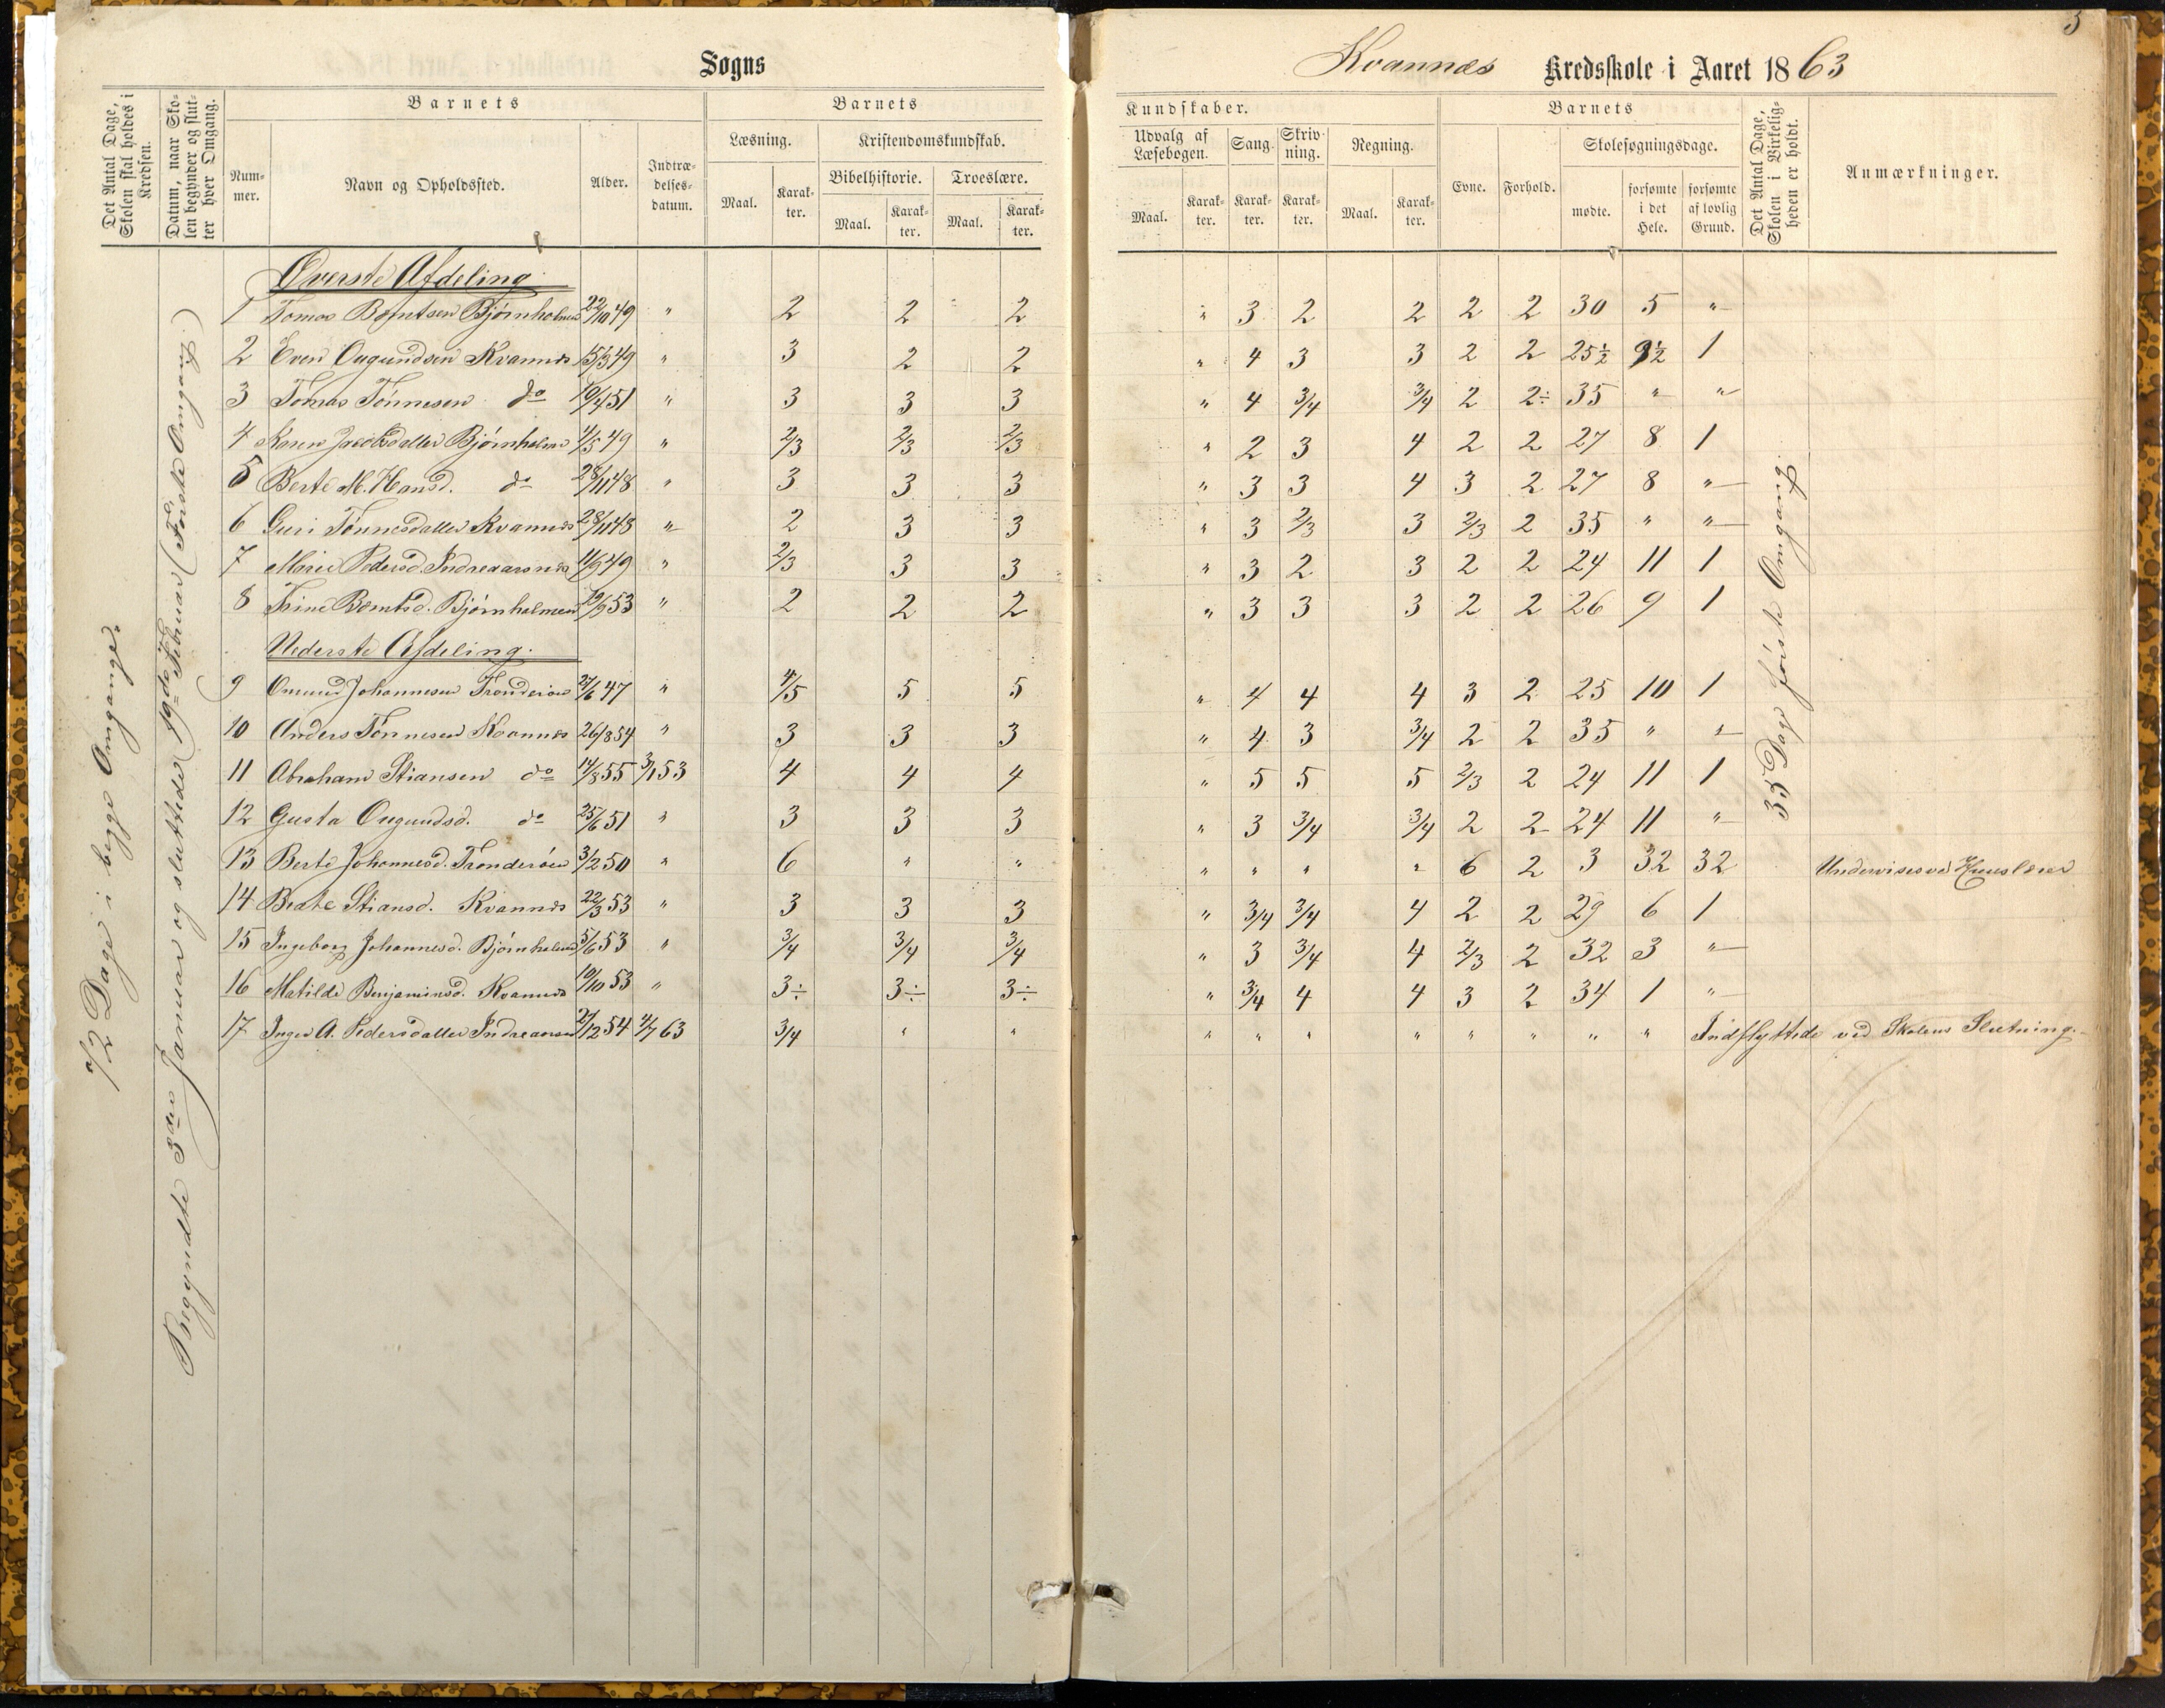 3
Sogns
Kvannæs Kredsskole i Aaret 1863
Det Antal Dage, Skolen skal holdes i Kredsen.
Datum, naar Skolen begynder og slutter hver Omgang.
Barnets
Nummer.
Navn og Opholdssted.
Alder.
Indtrædelsesdatum.
Barnets
Læsning.
Kristendomskundskab.
Bibelhistorie.
Troeslære.
Maal. Karakter. Maal. Karakter. Maal. Karakter.
Kundskaber.
Udvalg af Læsebogen.
Sang.
Skrivning.
Regning.
Maal. Karakter. Karakter. Karakter. Maal. Karakter.
Barnets
Evne. Forhold.
Skolesøgningsdage.
mødte. forsømte i det Hele. forsømte af lovlig Grund.
Det Antal Dage, Skolen i Virkeligheden er holdt.
Anmærkninger.
72 Dage i begge Omgange.
Begyndte 3die Januar og sluttede 19de Februar (Første Omgang.)
35 Dage første Omgang.
Øverste Afdeling.
1 Tomas Berntsen Bjørnholmen 22/10 49 " 2 2 2 " 3 2 2 2 2 30 5 "
2 Even Ougundsen Kvannæs 15/3 49 " 3 2 2 " 4 3 3 2 2 25½ 9½ 1
3 Tomas Tønnesen do 10/4 51 " 3 3 3 " 4 3/4 3/4 2 2÷ 35 " "
4 Karen Jacobsdatter Bjørnholmen 4/5 49 " 2/3 2/3 2/3 " 2 3 4 2 2 27 8 1
5 Berte M. Hansd. do 28/11 48 " 3 3 3 " 3 3 4 3 2 27 8 "
6 Guri Tønnesdatter Kvannæs 28/11 48 " 2 3 3 " 3 2/3 3 2/3 2 35 " "
7 Marie Pedersd. Indreaarsnæs 11/9 49 " 2/3 3 3 " 3 2 3 2 2 24 11 1
8 Trine Berntsd. Bjørnholmen 19/9 53 " 2 2 2 " 3 3 3 2 2 26 9 1
Nederste Afdeling.
9 Omund Johannesen Tronderøen 27/6 47 " 4/5 5 5 " 4 4 4 3 2 25 10 1
10 Anders Tønnesen Kvannæs 26/8 54 " 3 3 3 " 4 3 3/4 2 2 35 " "
11 Abraham Stiansen do 14/8 55 3/1 53 4 4 4 " 5 5 5 2/3 2 24 11 1
12 Gusta Ougundsd. do 25/6 51 " 3 3 3 " 3 3/4 3/4 2 2 24 11 "
13 Berte Johannesd. Tronderøen 3/2 50 " 6 " " " " " " 6 2 3 32 32 Undervises ved Huuslærer
14 Beate Stiansd. Kvannæs 22/3 53 " 3 3 3 " 3/4 3/4 4 2 2 29 6 1
15 Ingeborg Johannesd. Bjørnholmen 5/6 53 " 3/4 3/4 3/4 " 3 3/4 4 2/3 2 32 3 "
16 Matilde Benjaminsd. Kvannæs 10/10 53 " 3÷ 3÷ 3÷ " 3/4 4 4 3 2 34 1 "
17 Inger A. Pedersdatter Indreaarsnæs 27/12 54 4/7 63 3/4 " " " " " " " " " " Indflyttede ved Skolens Slutning.